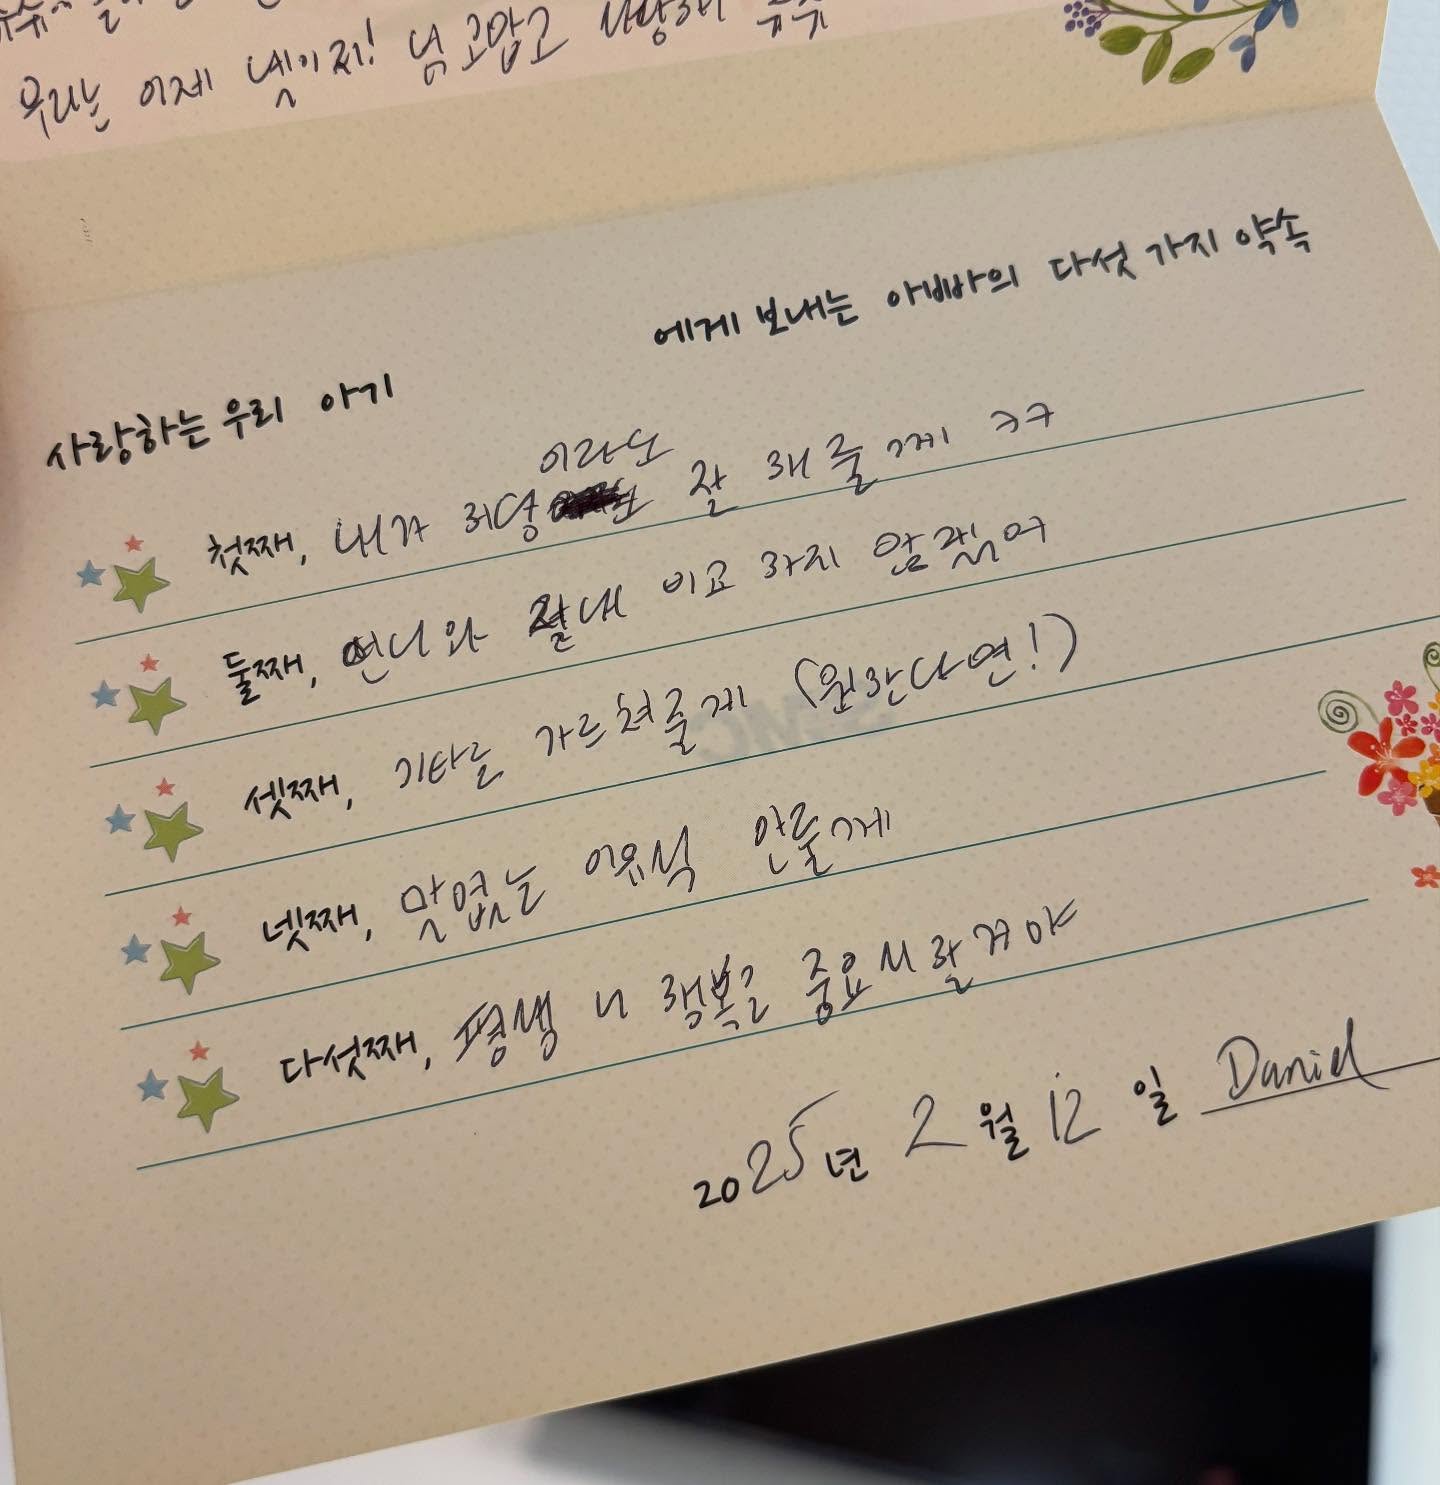 우리는 이제 넷이지! 넘 고맙고 사랑해 ㅠㅠ
에게 보내는 아빠의 다섯 가지 약속
사랑하는 우리 아기
이라도
첫째, 내가 허당 잘 해줄게 ㅋㅋ
둘째, 언니와 절대 비교 하지 않겠어
셋째, 기타를 가르쳐줄게 (원한다면!)
넷째, 맛없는 음식 안줄게
다섯째, 평생 너 행복을 중요시 할거야
2025년 2월 12일 Daniel